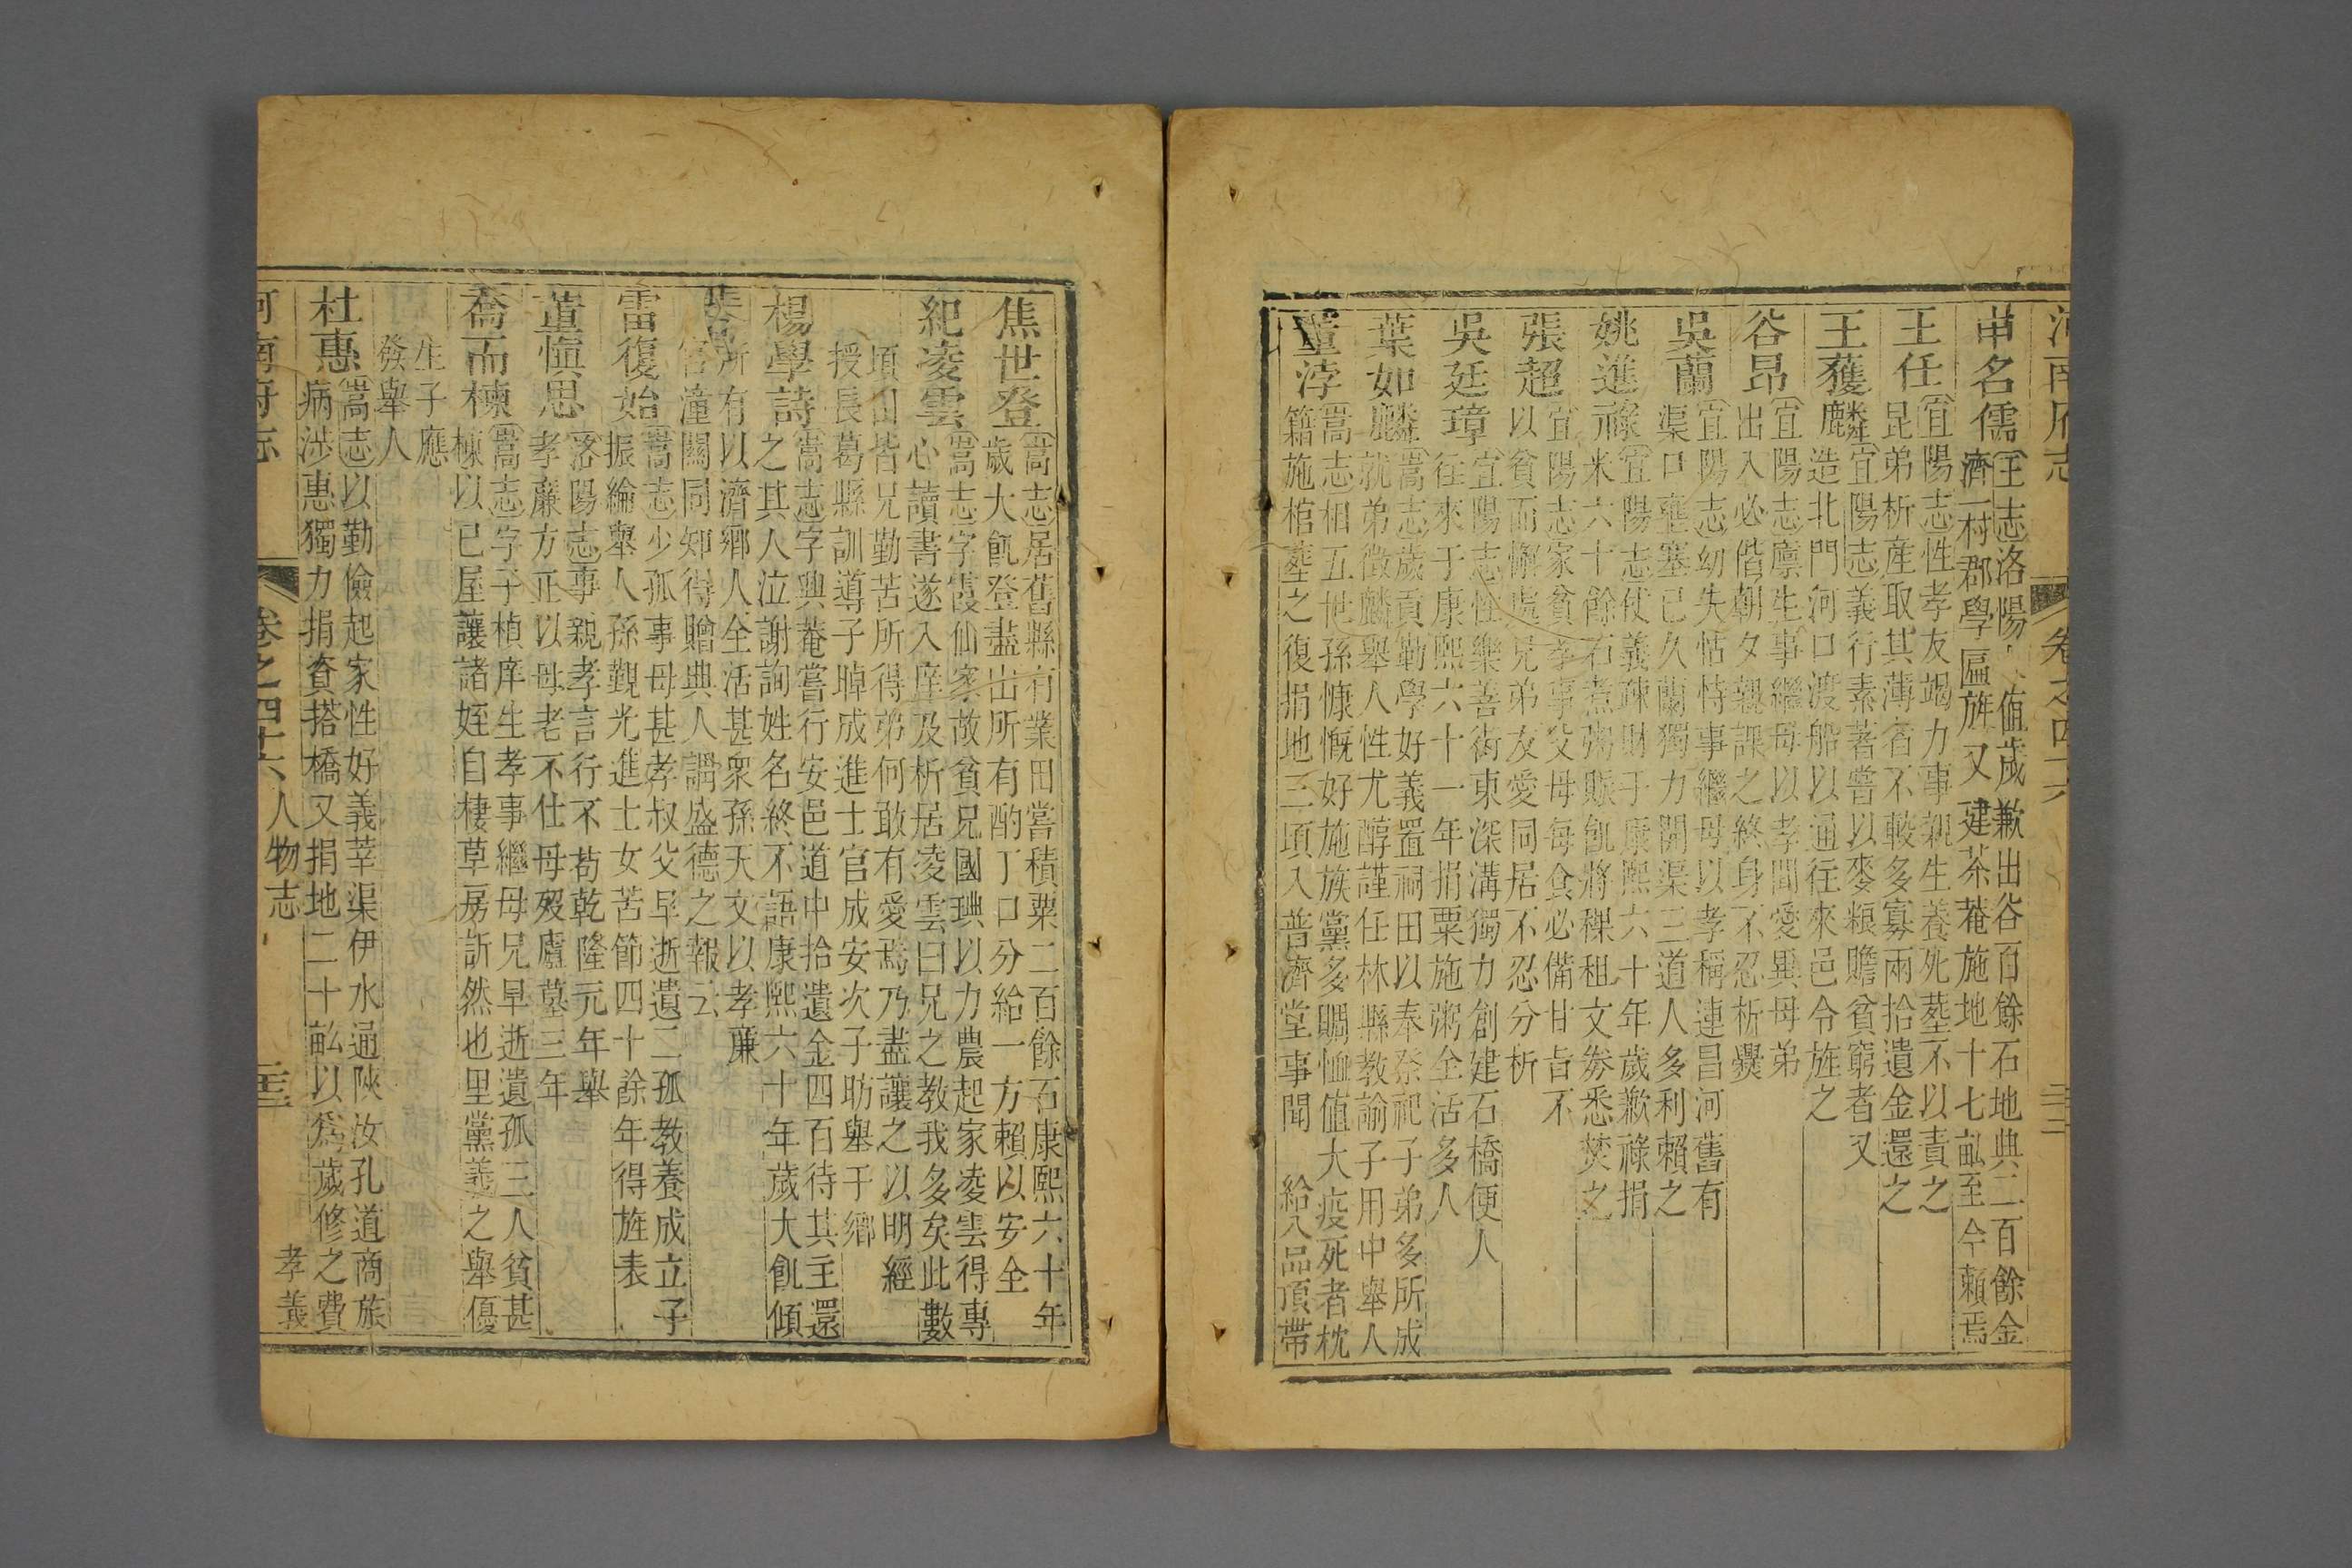 河南府志
卷之四十六
申名儒
王志洛陽人值歲歉出谷百餘石地典二百餘金
濟一村郡學匾旌又建茶菴施地十七畝至今賴焉
王任
宜陽志性孝友竭力事親生養死塟不以責之
昆弟析産取其薄者不較多寡兩拾遺金還之
王獲麟
宜陽志義行素著嘗以麥粮贍貧窮者又
造北門河口渡船以通往來邑令旌之
谷昂
宜陽志廪生事繼母以孝聞愛異母弟
出入必偕朝夕親課之終身不忍析爨
吳蘭
宜陽志幼失怙恃事繼母以孝稱連昌河舊有
渠口壅塞已久蘭獨力開渠三道人多利賴之
姚進祿
宜陽志仗義疎財于康熙六十年歲歉祿捐
米六十餘石煮粥賑飢將稞租文券悉焚之
張超
宜陽志家貧孝事父母每食必備甘旨不
以貧而懈處兄弟友愛同居不忍分析
吳廷璋
宜陽志性樂善街東深溝獨力創建石橋便人
往來于康熙六十一年捐粟施粥全活多人
葉如麟
嵩志歲貢勤學好義置祠田以奉祭祀子弟多所成
就弟徵麟舉人性尤醇謹任林縣教諭子用中舉人
董浡
嵩志相五世孫慷慨好施族黨多賙恤值大疫死者枕
籍施棺塟之復捐地三項入普濟堂事聞 給八品頂帶
焦世登
嵩志居舊縣有業田嘗積粟二百餘石康熙六十年
歲大飢登盡出所有酌丁口分給一方賴以安全
紀凌雲
嵩志字霞仙家故貧兄國琠以力農起家凌雲得專
心讀書遂入庠及析居凌雲曰兄之教我多矣此數
頃田皆兄勤苦所得弟何敢有愛焉乃盡讓之以明經
授長葛縣訓導子晫成進士官成安次子助舉于鄉
楊學詩
嵩志字興菴嘗行安邑道中拾遺金四百待其主還
之其人泣謝詢姓名終不語康熙六十年歲大飢傾
所有以濟鄉人全活甚衆孫天文以孝廉
官潼關同知得贈典人謂盛德之報云
雷復始
嵩志少孤事母甚孝叔父早逝遺二孤教養成立子
振綸舉人孫觀光進士女苦節四十餘年得旌表
董愼思
洛陽志事親孝言行不苟乾隆元年舉
孝廉方正以母老不仕母歿廬墓三年
喬而棟
嵩志字子楨庠生孝事繼母兄早逝遺孤三人貧甚
棟以已屋讓諸姪自棲草房訢然也里黨義之舉優
生子應
發舉人
杜惠
嵩志以勤儉起家性好義莘渠伊水通陝汝孔道商旅
病涉惠獨力捐資搭橋又捐地二十畝以爲歲修之費
河南府志
卷之四十六 人物志
孝義